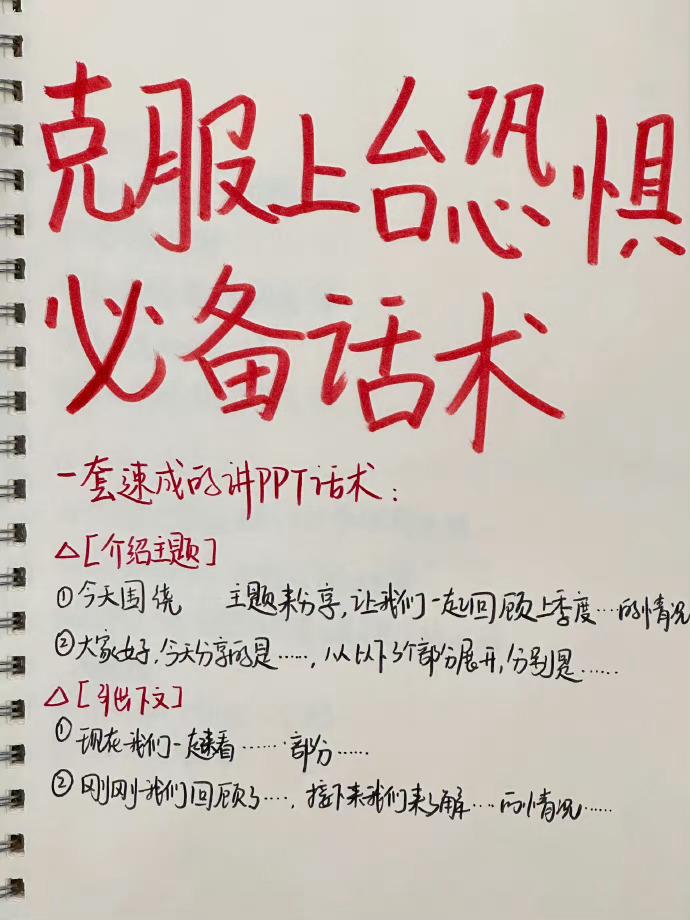 克服上台恐惧
必备话术
一套速成的讲PPT话术：
△[介绍主题]
①今天围绕 主题来分享,让我们一起回顾上季度…的情况
②大家好,今天分享的是……,从以下3个部分展开,分别是……
△[引出下文]
①现在我们一起来看……部分……
②刚刚我们回顾了…,接下来我们来了解…的情况……